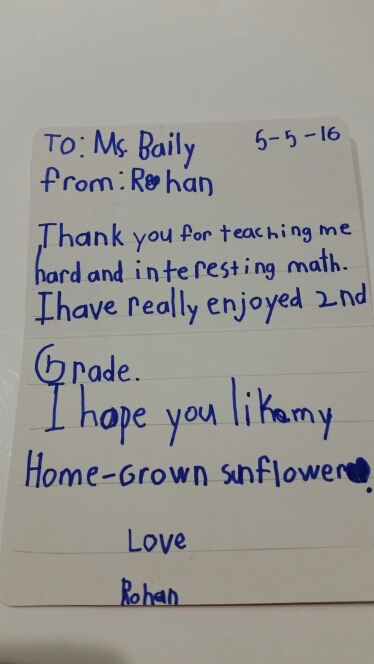 To: Ms. Baily 5-5-16
from: Rohan
Thank you for teaching me
hard and interesting math.
I have really enjoyed 2nd
Grade.
I hope you like my
Home-Grown sunflower.
Love
Rohan